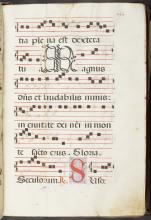 tia ple na est dextera
Magnus
dñs et laudabilis nimis:
in ciuitate dei nři in mon
te scto eius. Gloria.
Seculorum. R. Susce